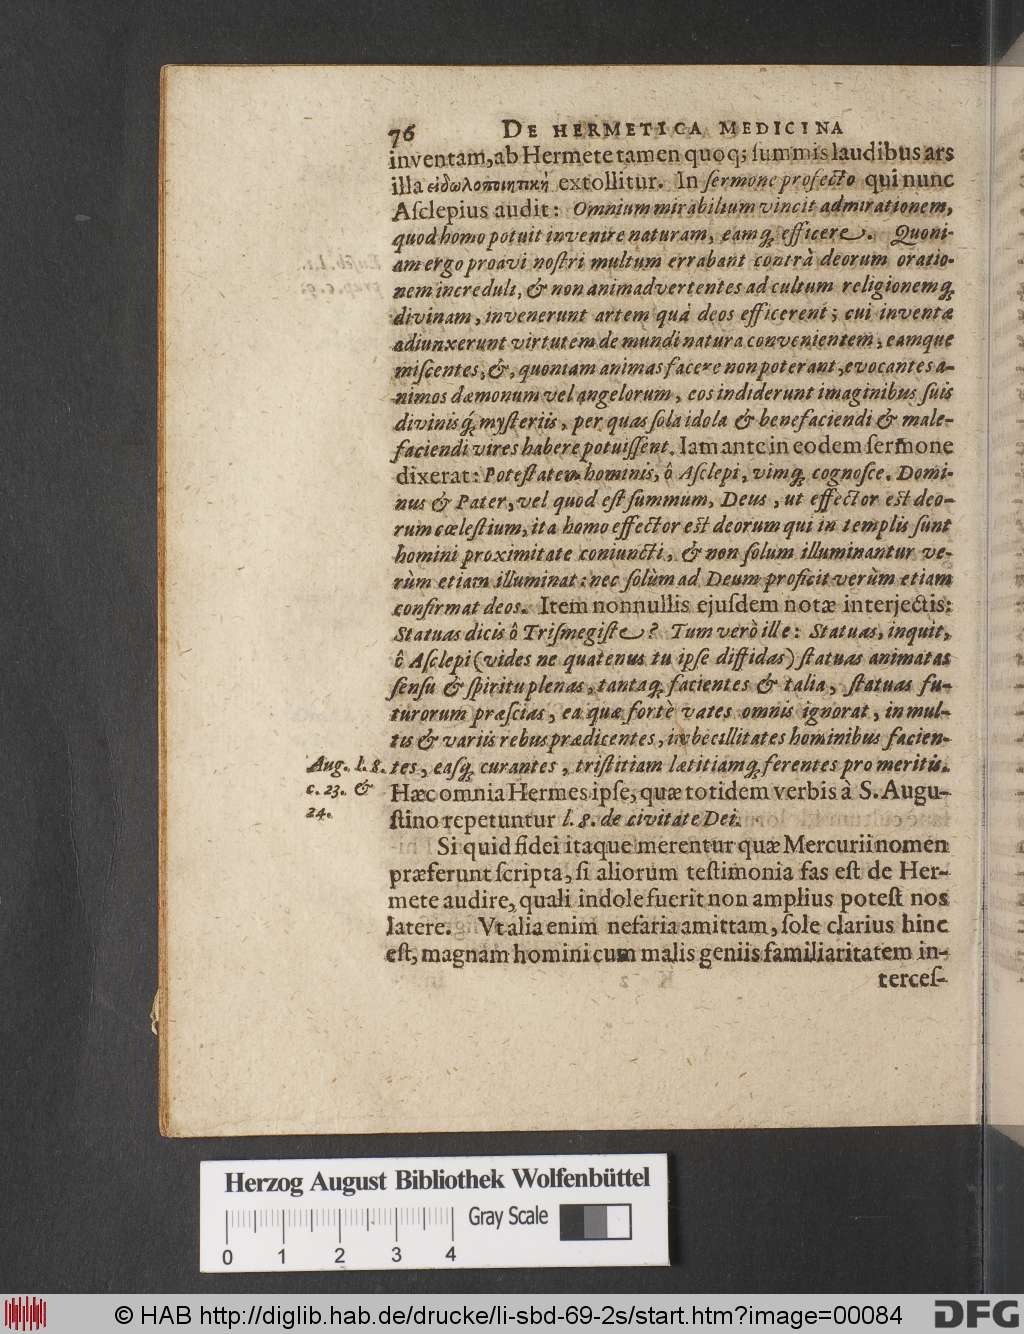 76 DE HERMETICA MEDICINA
inventam, ab Hermete tamen quoq; ſummis laudibus ars
illa εἰδωλοποιητικὴ extollitur. In ſermone profecto qui nunc
Aſclepius audit: Omnium mirabilium vincit admirationem,
quod homo potuit invenire naturam, eamq́; efficere. Quoni-
am ergo proavi noſtri multum errabant contrà deorum oratio-
nem increduli, & non animadvertentes ad cultum religionemq́;
divinam, invenerunt artem quâ deos efficerent; cui inventæ
adiunxerunt virtutem de mundi natura convenientem, eamque
miſcentes, &, quoniam animas facere non poterant, evocantes a-
nimos dæmonum vel angelorum, eos indiderunt imaginibus ſuis
divinisq́; myſteriis, per quas ſola idola & benefaciendi & male-
faciendi vires habere potuiſſent. Iam ante in eodem ſermone
dixerat: Poteſtatem hominis, ô Aſclepi, vimq́; cognoſce. Domi-
nus & Pater, vel quod eſt ſummum, Deus, ut effector eſt deo-
rum cœleſtium, ita homo effector eſt deorum qui in templis ſunt
homini proximitate coniuncti, & non ſolum illuminantur ve-
rùm etiam illuminat: nec ſolùm ad Deum proficit verùm etiam
confirmat deos. Item nonnullis ejuſdem notæ interjectis:
Statuas dicis ô Triſmegiſte? Tum verò ille: Statuas, inquit,
ô Aſclepi (vides ne quatenus tu ipſe diffidas) ſtatuas animatas
ſenſu & ſpiritu plenas, tantaq́; facientes & talia, ſtatuas fu-
turorum præſcias, ea quæ fortè vates omnis ignorat, in mul-
tis & variis rebus prædicentes, imbecillitates hominibus facien-
Aug. l. 8. tes, eaſq́; curantes, triſtitiam lætitiamq́; ferentes pro meritis.
c. 23. & Hæc omnia Hermes ipſe, quæ totidem verbis à S. Augu-
24. ſtino repetuntur l. 8. de civitate Dei.
Si quid fidei itaque merentur quæ Mercurii nomen
præferunt ſcripta, ſi aliorum teſtimonia fas eſt de Her-
mete audire, quali indole fuerit non amplius poteſt nos
latere. Vt alia enim nefaria amittam, ſole clarius hinc
eſt, magnam homini cum malis geniis familiaritatem in-
terceſ-
Herzog August Bibliothek Wolfenbüttel
Gray Scale
0 1 2 3 4
© HAB http://diglib.hab.de/drucke/li-sbd-69-2s/start.htm?image=00084 DFG